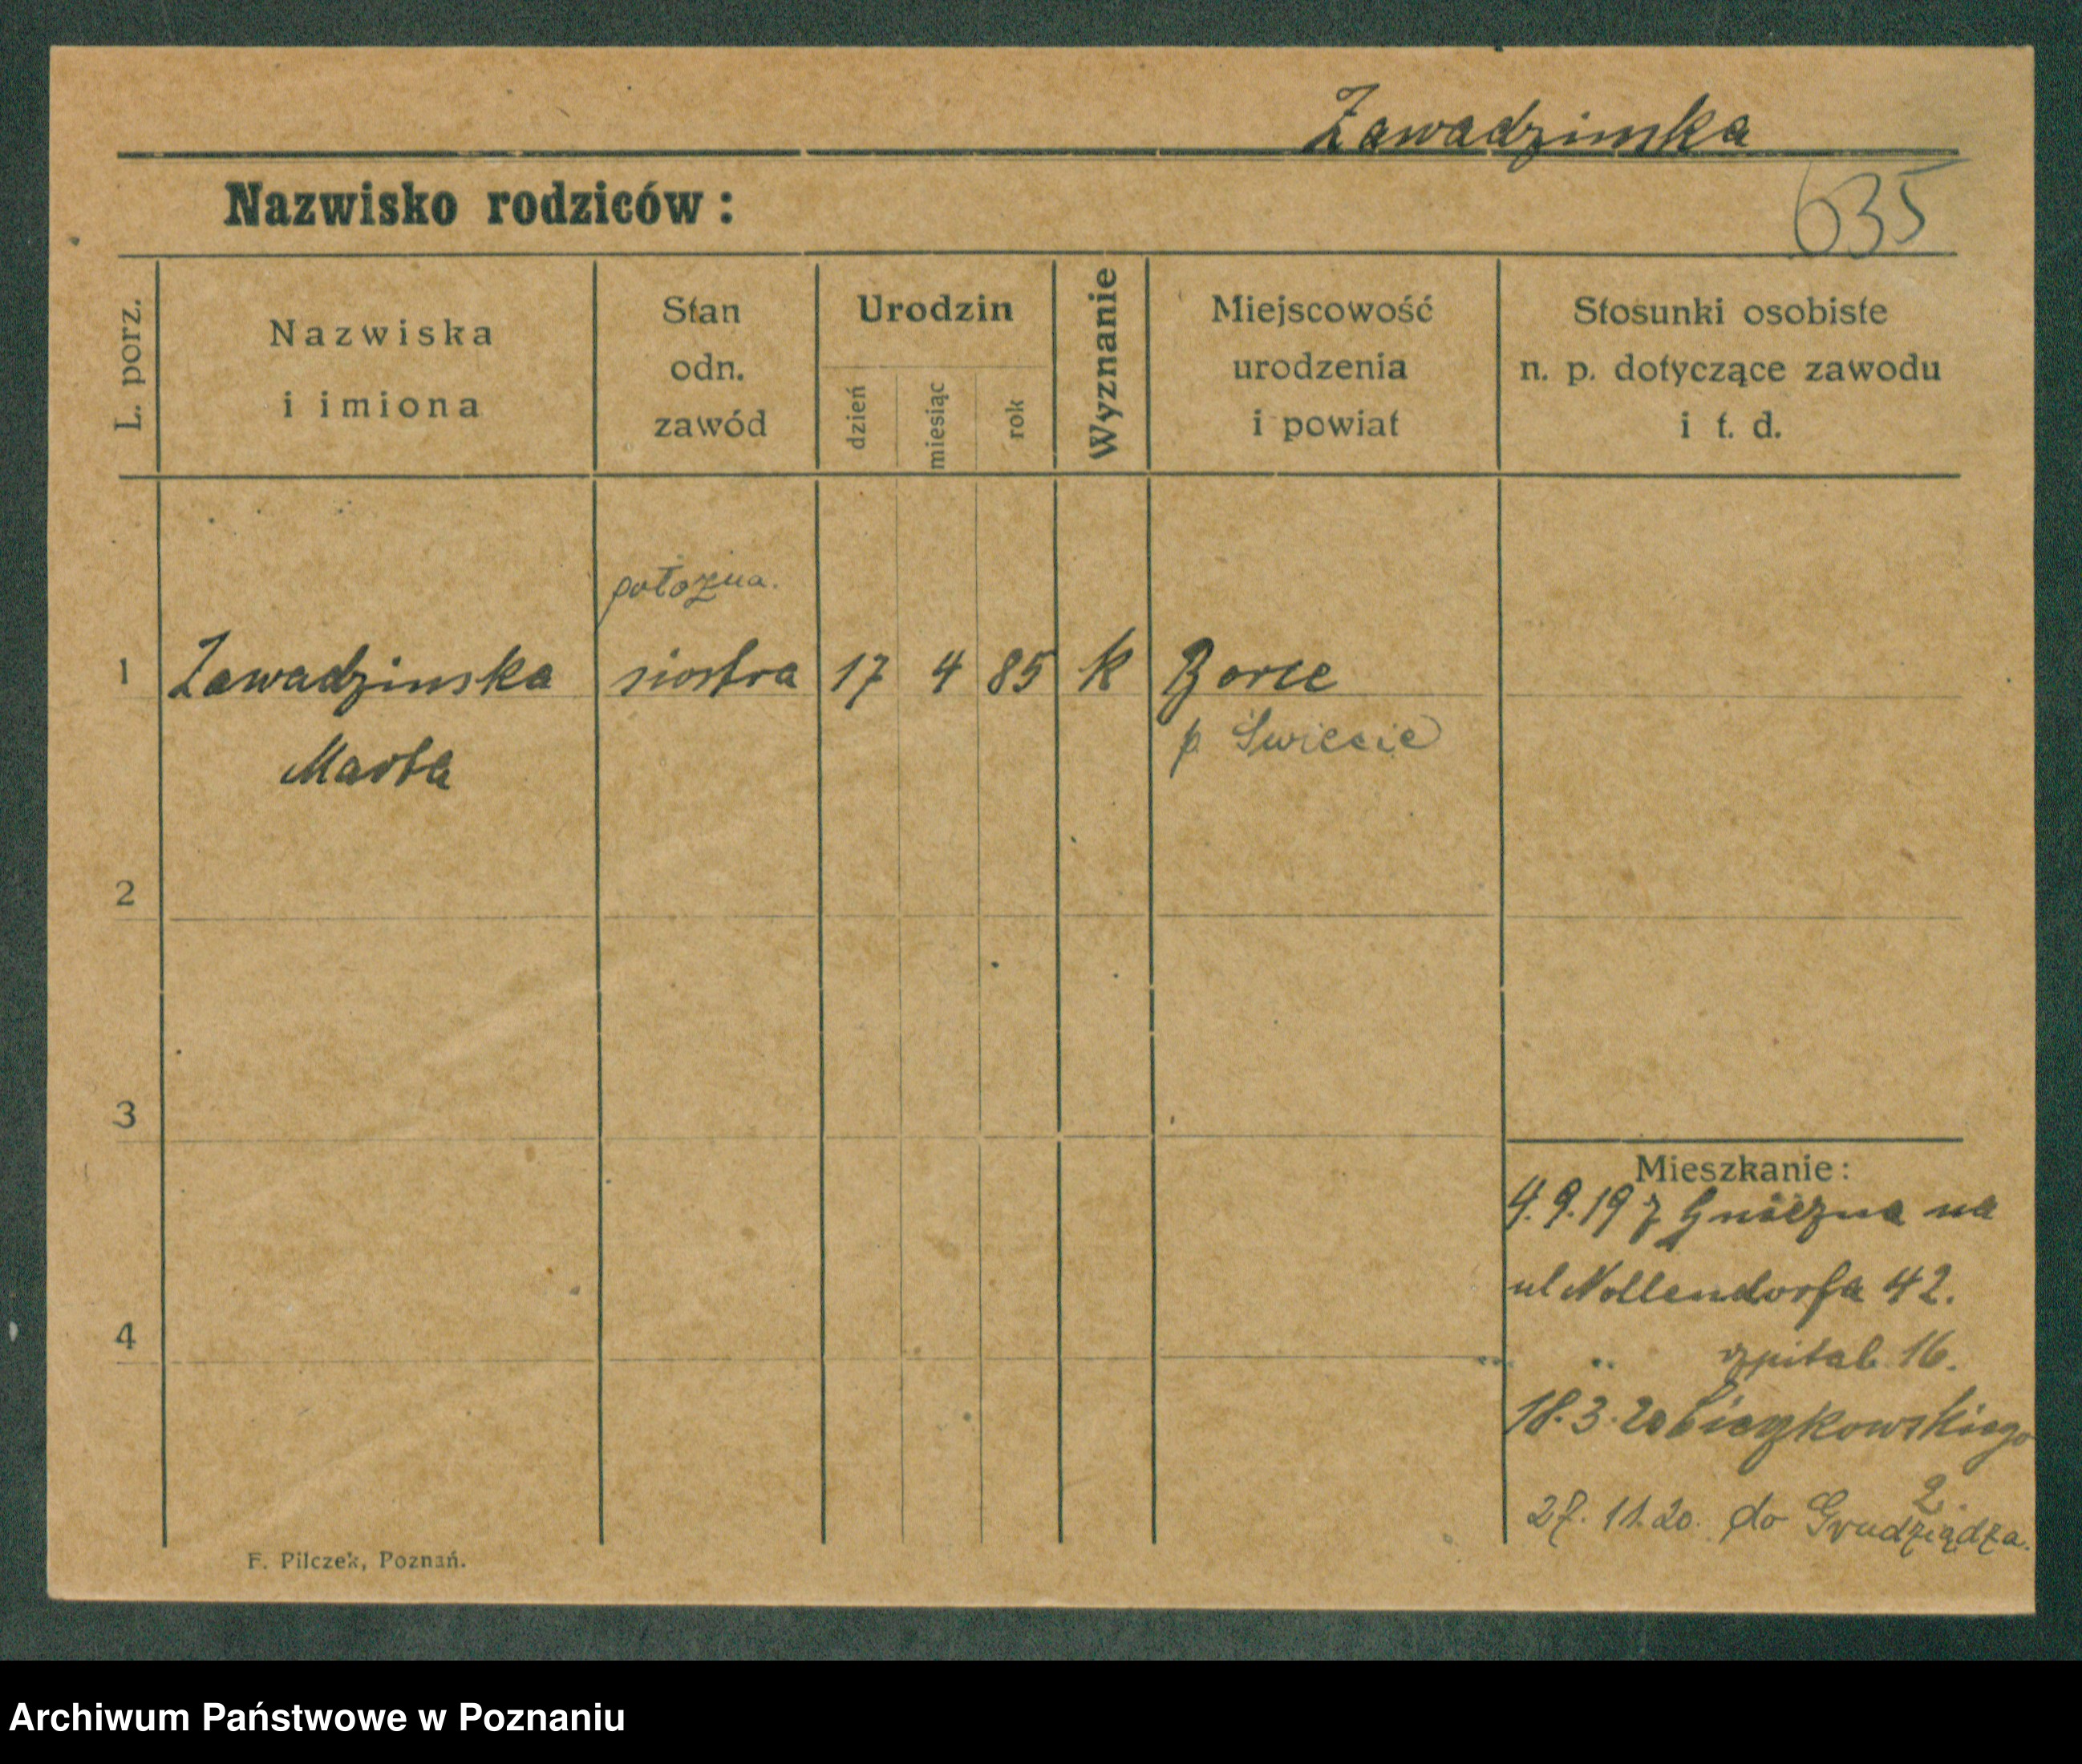 Zawadzinska
Nazwisko rodziców:
635
L. porz.
Nazwiska
i imiona
Stan
odn.
zawód
Urodzin
dzień
miesiąc
rok
Wyznanie
Miejscowość
urodzenia
i powiat
Stosunki osobiste
n. p. dotyczące zawodu
i t. d.
położna.
1 Zawadzinska siostra 17 4 85 k
p. Świecie
Marta
2
3
Mieszkanie:
4.9.19 z Gniezna na
ul Nollendorfa 42.
4
" " szpital 16.
18.3.20
2.
27.11.20. do Grudziądza.
F. Pilczek, Poznań.
Archiwum Państwowe w Poznaniu